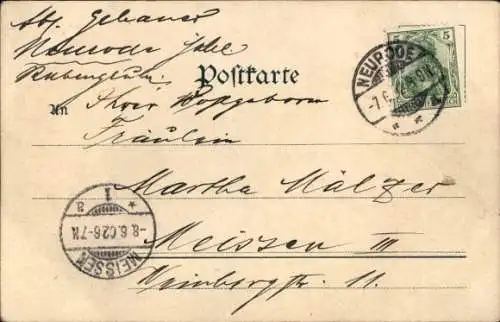 Abs. Gebauer
Neurode
Postkarte
An Ihrer Hochgeboren
Fräulein
Martha Mälzer
Meissen III
Weinbergstr. 11.
NEURODE
-7.6
5
1
* a
-8.6.02.6-7N.
MEISSEN